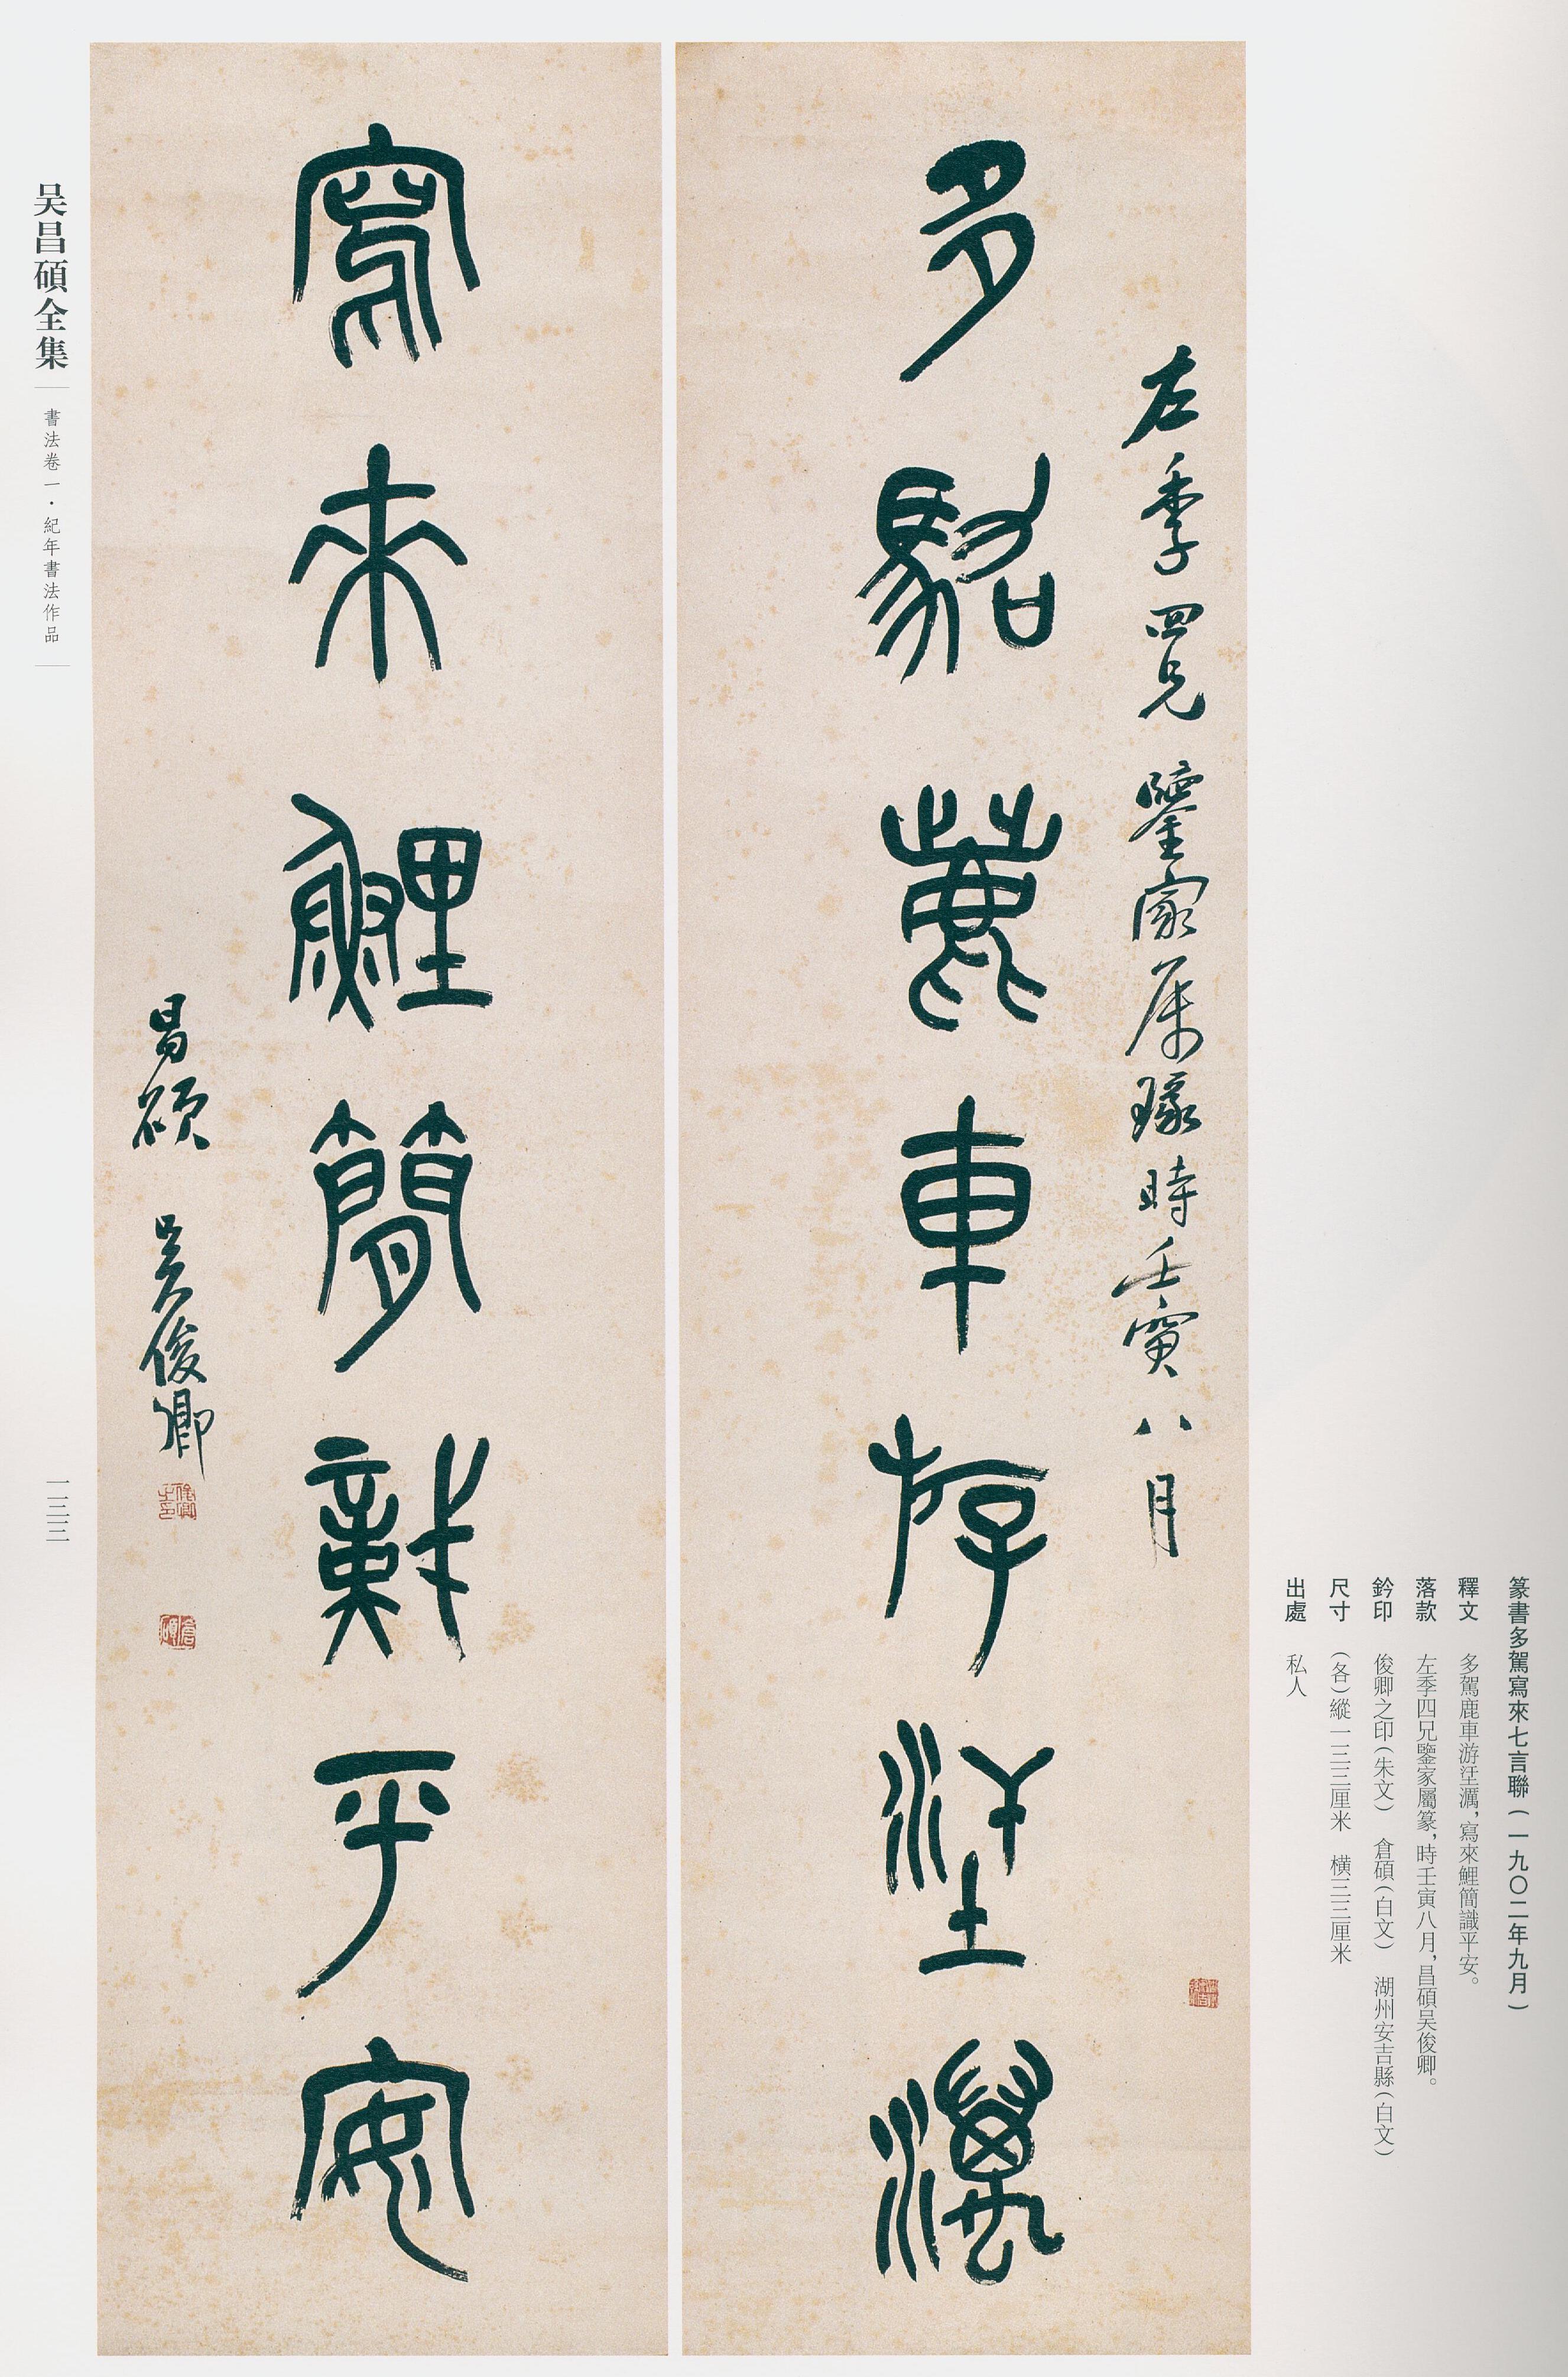 篆書多駕寫來七言聯（一九〇二年九月）
釋文　多駕鹿車游𡉄澫，寫來鯉簡識平安。
落款　左季四兄鑒家屬篆，時壬寅八月，昌碩吴俊卿。
鈐印　俊卿之印（朱文）　倉碩（白文）　湖州安吉縣（白文）
尺寸　（各）縱一三三厘米　横三三厘米
出處　私人
左季四兄鑒家属瑑時壬寅八月
多駕鹿車游澫
寫來鯉簡識平安
昌碩吴俊卿
俊卿之印
倉碩
吴昌碩全集
書法卷一·紀年書法作品
一三三